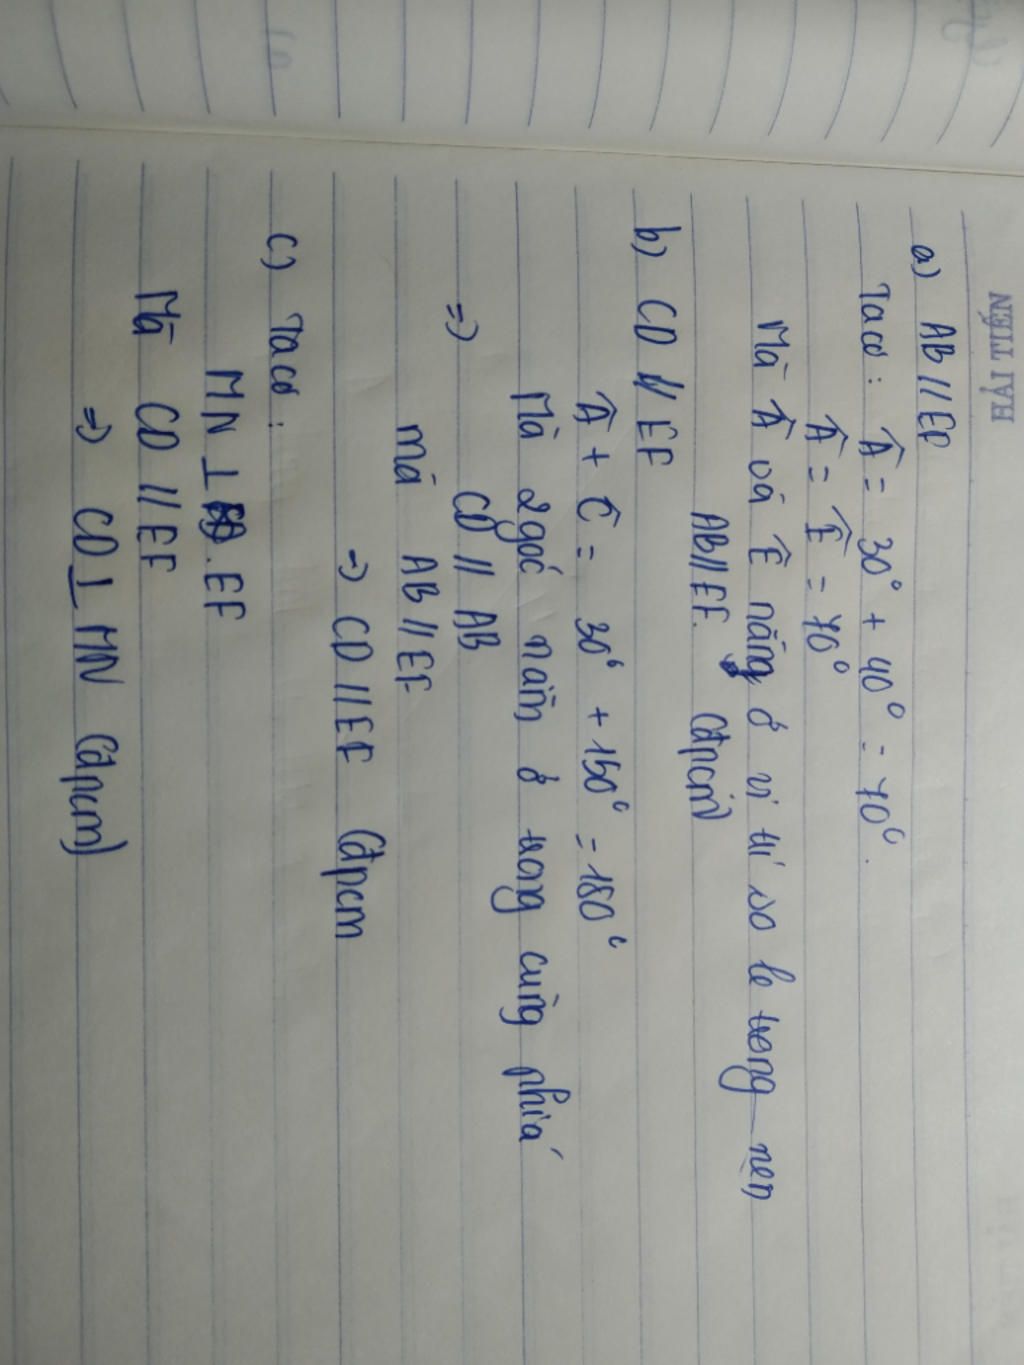 HẢI TIẾN
a) AB // EF
Ta có : Â = 30° + 40° = 70°.
Â = Ê = 70°
Mà Â và Ê nằng ở vị trí so le trong nen
AB // EF. (đpcm)
b) CD // EF
Â + Ĉ = 30° + 150° = 180°
Mà 2 góc nằm ở trong cùng phía
=> CD // AB
mà AB // EF
=> CD // EF (đpcm
c) Ta có :
MN ⊥ EF
Mà CD // EF
=> CD ⊥ MN (đpcm)